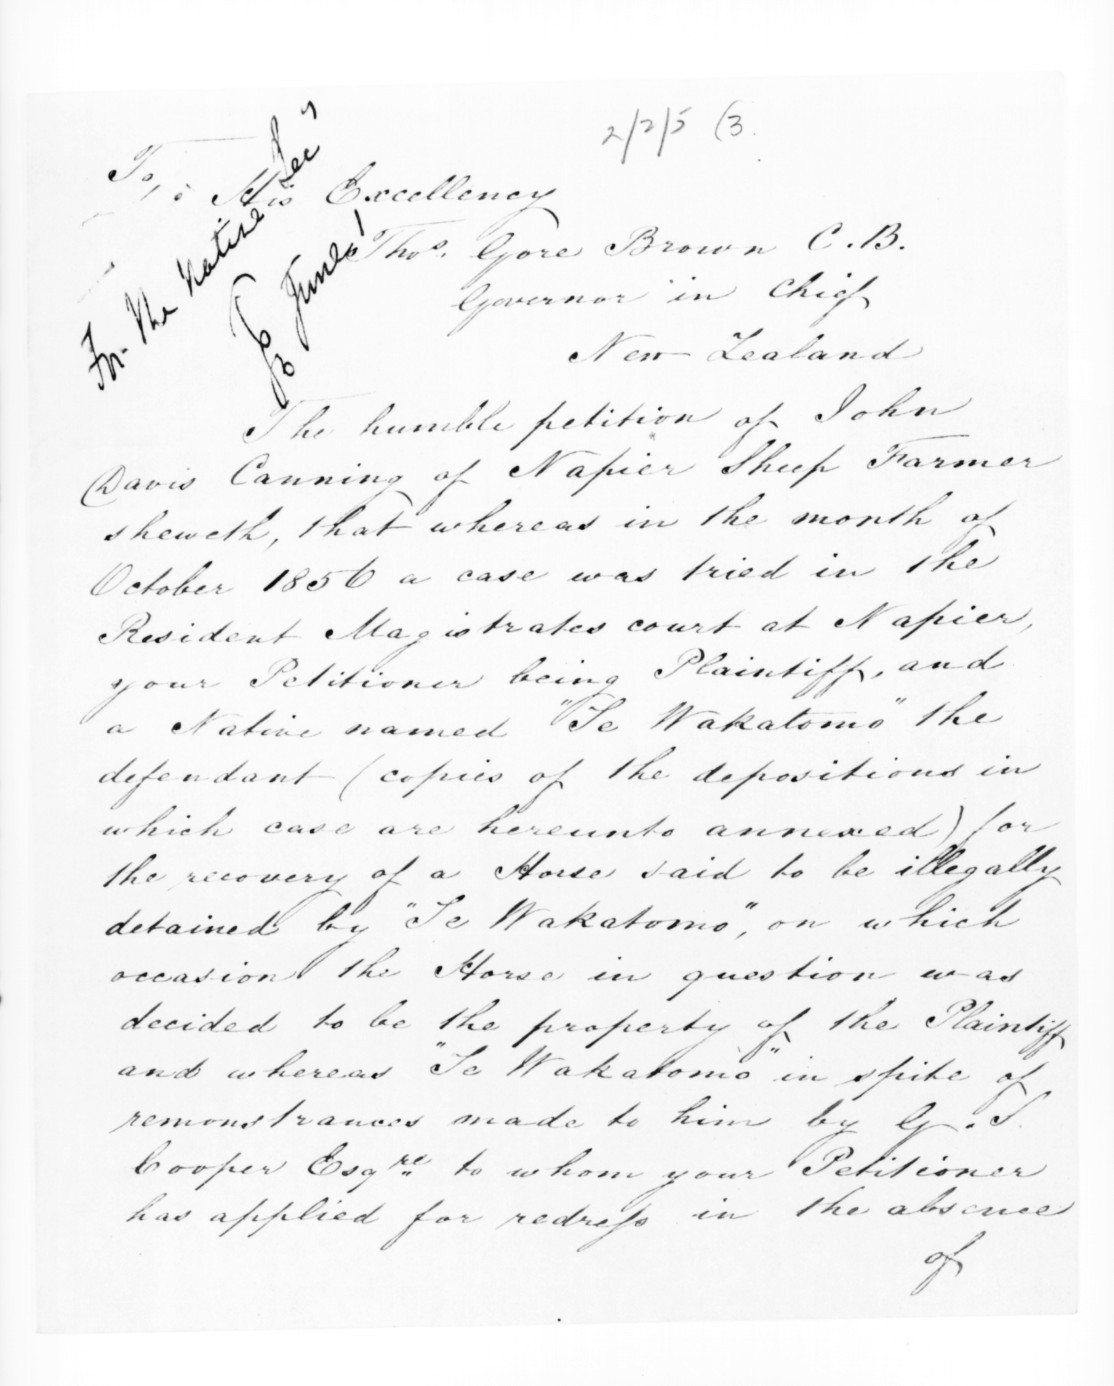 2/2/5 (3.
For the Native Sec
June 1
To, His Excellency
Thos. Gore Brown C.B.
Governor in Chief
New Zealand
The humble petition of John
Davis Canning of Napier Sheep Farmer
sheweth, that whereas in the month of
October 1856 a case was tried in the
Resident Magistrates court at Napier,
your Petitioner being Plaintiff, and
a Native named "Te Wakatomo" the
defendant (copies of the depositions in
which case are hereunto annexed) for
the recovery of a Horse said to be illegally
detained by "Te Wakatomo", on which
occasion the Horse in question was
decided to be the property of the Plaintiff
and whereas "Te Wakatomo" in spite of
remonstrances made to him by G. S.
Cooper Esqre to whom your Petitioner
has applied for redress in the absence
of